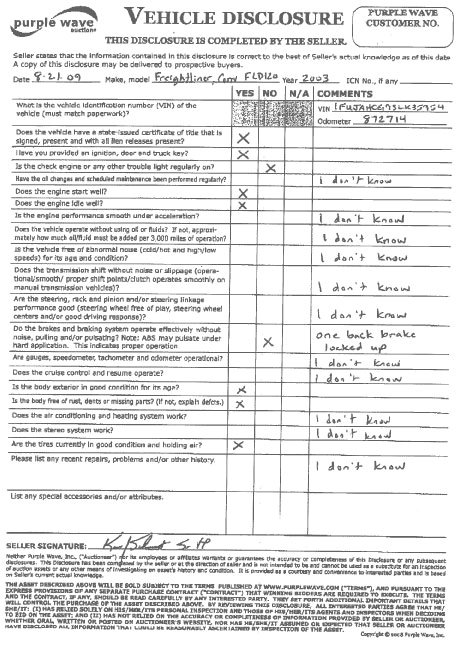 purple wave
auctions
VEHICLE DISCLOSURE
PURPLE WAVE
CUSTOMER NO.
THIS DISCLOSURE IS COMPLETED BY THE SELLER.
Seller states that the information contained in this disclosure is correct to the best of Seller's actual knowledge as of this date
A copy of this disclosure may be delivered to prospective buyers.
Date 8-21-09 Make, model Freightliner, Conv FLD120 Year 2003 ICN No., if any
YES NO N/A COMMENTS
What is the vehicle identification number (VIN) of the
vehicle (must match paperwork)?
VIN
Odometer 872714
Does the vehicle have a state-issued certificate of title that is
signed, present and with all lien releases present? X
Have you provided an ignition, door and truck key? X
Is the check engine or any other trouble light regularly on? X
Have the oil changes and scheduled maintenance been performed regularly? I don't know
Does the engine start well? X
Does the engine idle well? X
Is the engine performance smooth under acceleration? I don't know
Does the vehicle operate without using oil or fluids? If not, approxi-
mately how much oil/fluid must be added per 3,000 miles of operation? I don't know
Is the vehicle free of abnormal noise (cold/hot and high/low
speeds) for its age and condition? I don't know
Does the transmission shift without noise or slippage (opera-
tional/smooth/ proper shift points/clutch operates smoothly on
manual transmission vehicles)? I don't know
Are the steering, rack and pinion and/or steering linkage
performance good (steering wheel free of play, steering wheel
centers and/or good driving response)? I don't know
Do the brakes and braking system operate effectively without
noise, pulling and/or pulsating? Note: ABS may pulsate under
hard application. This indicates proper operation X one back brake
locked up
Are gauges, speedometer, tachometer and odometer operational? I don't know
Does the cruise control and resume operate? I don't know
Is the body exterior in good condition for its age? X
Is the body free of rust, dents or missing parts? (if not, explain defects.) X
Does the air conditioning and heating system work? I don't know
Does the stereo system work? I don't know
Are the tires currently in good condition and holding air? X
Please list any recent repairs, problems and/or other history. I don't know
List any special accessories and/or attributes.
SELLER SIGNATURE:
Neither Purple Wave, Inc., ("Auctioneer") nor its employees or affiliates warrants or guarantees the accuracy or completeness of this Disclosure or any subsequent
disclosures. This Disclosure has been completed by the seller or at the direction of seller and is not intended to be and cannot be used as a substitute for an inspection
of auction assets or any other means of investigating an asset's history and condition. It is provided as a courtesy and convenience to interested parties and is based
on Seller's current actual knowledge.
THE ASSET DESCRIBED ABOVE WILL BE SOLD SUBJECT TO THE TERMS PUBLISHED AT WWW.PURPLEWAVE.COM ("TERMS"), AND PURSUANT TO THE
EXPRESS PROVISIONS OF ANY SEPARATE PURCHASE CONTRACT ("CONTRACT") THAT WINNING BIDDERS ARE REQUIRED TO EXECUTE. THE TERMS
AND THE CONTRACT, IF ANY, SHOULD BE READ CAREFULLY BY ANY INTERESTED PARTY. THEY SET FORTH ADDITIONAL IMPORTANT DETAILS THAT
WILL CONTROL THE PURCHASE OF THE ASSET DESCRIBED ABOVE. BY REVIEWING THIS DISCLOSURE, ALL INTERESTED PARTIES AGREE THAT HE/
SHE/IT: (1) HAS RELIED SOLELY ON HIS/HER/ITS PERSONAL INSPECTION AND THOSE OF HIS/HER/ITS AGENTS AND INSPECTORS WHEN DECIDING
TO BID ON THE ASSET; AND (2) HAS NOT RELIED ON THE ACCURACY OR COMPLETENESS OF INFORMATION PROVIDED BY SELLER OR AUCTIONEER,
WHETHER ORAL, WRITTEN OR POSTED ON AUCTIONEER'S WEBSITE, NOR HAS HE/SHE/IT ASSUMED OR EXPECTED THAT SELLER OR AUCTIONEER
HAVE DISCLOSED ALL INFORMATION THAT COULD BE REASONABLY ASCERTAINED BY INSPECTION OF THE ASSET.
Copyright © 2008 Purple Wave, Inc.